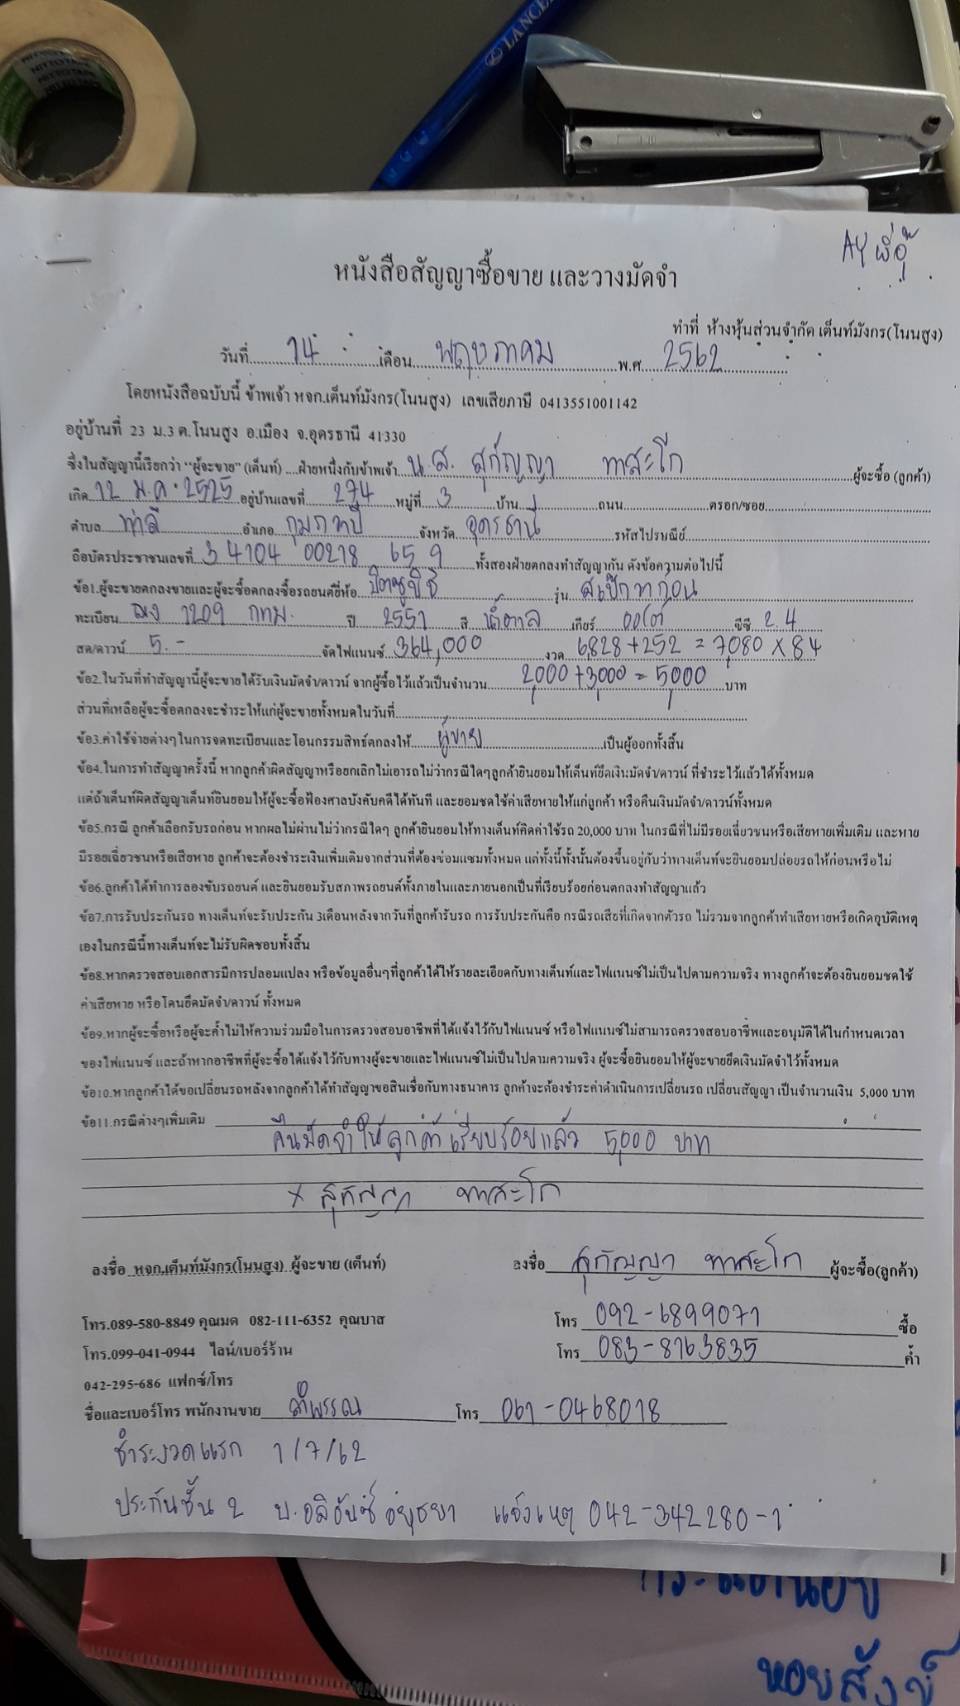 NITTO TAPE
LANCER
AY พี่อุ๊
หนังสือสัญญาซื้อขาย และวางมัดจำ
ทำที่ ห้างหุ้นส่วนจำกัด เต็นท์มังกร(โนนสูง)
วันที่ 14 เดือน พฤษภาคม พ.ศ. 2562
โดยหนังสือฉบับนี้ ข้าพเจ้า หจก.เต็นท์มังกร(โนนสูง) เลขเสียภาษี 0413551001142
อยู่บ้านที่ 23 ม.3 ต.โนนสูง อ.เมือง จ.อุดรธานี 41330
ซึ่งในสัญญานี้เรียกว่า "ผู้จะขาย" (เต็นท์) ....ฝ่ายหนึ่งกับข้าพเจ้า น.ส. สุกัญญา ทาสะโก ผู้จะซื้อ (ลูกค้า)
เกิด 12 ม.ค. 2525 อยู่บ้านเลขที่ 274 หมู่ที่ 3 บ้าน ถนน ตรอก/ซอย
ตำบล ท่าลี่ อำเภอ กุมภวาปี จังหวัด อุดรธานี รหัสไปรษณีย์
ถือบัตรประชาชนเลขที่ 3 4104 00218 65 9 ทั้งสองฝ่ายตกลงทำสัญญากัน ดังข้อความต่อไปนี้
ข้อ1.ผู้จะขายตกลงขายและผู้จะซื้อตกลงซื้อรถยนต์ยี่ห้อ มิตซูบิชิ รุ่น สเปิกทก้อน
ทะเบียน 1209 กทม. ปี 2551 สี น้ำตาล เกียร์ ออโต้ ซีซี 2.4
สด/ดาวน์ 5.- จัดไฟแนนซ์ 364,000 งวด 6,828+252 = 7,080 x 84
ข้อ2.ในวันที่ทำสัญญานี้ผู้จะขายได้รับเงินมัดจำ/ดาวน์ จากผู้ซื้อไว้แล้วเป็นจำนวน 2,000+3,000 = 5,000 บาท
ส่วนที่เหลือผู้จะซื้อตกลงจะชำระให้แก่ผู้จะขายทั้งหมดในวันที่
ข้อ3.ค่าใช้จ่ายต่างๆในการจดทะเบียนและโอนกรรมสิทธ์ตกลงให้ ผู้ขาย เป็นผู้ออกทั้งสิ้น
ข้อ4.ในการทำสัญญาครั้งนี้ หากลูกค้าผิดสัญญาหรือยกเลิกไม่เอารถไม่ว่ากรณีใดๆลูกค้ายินยอมให้เต็นท์ยึดเงินมัดจำ/ดาวน์ ที่ชำระไว้แล้วได้ทั้งหมด
แต่ถ้าเต็นท์ผิดสัญญาเต็นท์ยินยอมให้ผู้จะซื้อฟ้องศาลบังคับคดีได้ทันที และยอมชดใช้ค่าเสียหายให้แก่ลูกค้า หรือคืนเงินมัดจำ/ดาวน์ทั้งหมด
ข้อ5.กรณี ลูกค้าเลือกรับรถก่อน หากผลไม่ผ่านไม่ว่ากรณีใดๆ ลูกค้ายินยอมให้ทางเต็นท์คิดค่าใช้รถ 20,000 บาท ในกรณีที่ไม่มีรอยเฉี่ยวชนหรือเสียหายเพิ่มเติม และหาย
มีรอยเฉี่ยวชนหรือเสียหาย ลูกค้าจะต้องชำระเงินเพิ่มเติมจากส่วนที่ต้องซ่อมแซมทั้งหมด แต่ทั้งนี้ทั้งนั้นต้องขึ้นอยู่กับว่าทางเต็นท์จะยินยอมปล่อยรถให้ก่อนหรือไม่
ข้อ6.ลูกค้าได้ทำการลองขับรถยนต์ และยินยอมรับสภาพรถยนต์ทั้งภายในและภายนอกเป็นที่เรียบร้อยก่อนตกลงทำสัญญาแล้ว
ข้อ7.การรับประกันรถ ทางเต็นท์จะรับประกัน 3เดือนหลังจากวันที่ลูกค้ารับรถ การรับประกันคือ กรณีรถเสียที่เกิดจากตัวรถ ไม่รวมจากลูกค้าทำเสียหายหรือเกิดอุบัติเหตุ
เองในกรณีนี้ทางเต็นท์จะไม่รับผิดชอบทั้งสิ้น
ข้อ8.หากตรวจสอบเอกสารมีการปลอมแปลง หรือข้อมูลอื่นๆที่ลูกค้าได้ให้รายละเอียดกับทางเต็นท์และไฟแนนซ์ไม่เป็นไปตามความจริง ทางลูกค้าจะต้องยินยอมชดใช้
ค่าเสียหาย หรือโดนยึดมัดจำ/ดาวน์ ทั้งหมด
ข้อ9.หากผู้จะซื้อหรือผู้จะค้ำไม่ให้ความร่วมมือในการตรวจสอบอาชีพที่ได้แจ้งไว้กับไฟแนนซ์ หรือไฟแนนซ์ไม่สามารถตรวจสอบอาชีพและอนุมัติได้ในกำหนดเวลา
ของไฟแนนซ์ และถ้าหากอาชีพที่ผู้จะซื้อได้แจ้งไว้กับทางผู้จะขายและไฟแนนซ์ไม่เป็นไปตามความจริง ผู้จะซื้อยินยอมให้ผู้จะขายยึดเงินมัดจำไว้ทั้งหมด
ข้อ10.หากลูกค้าได้ขอเปลี่ยนรถหลังจากลูกค้าได้ทำสัญญาขอสินเชื่อกับทางธนาคาร ลูกค้าจะต้องชำระค่าดำเนินการเปลี่ยนรถ เปลี่ยนสัญญา เป็นจำนวนเงิน 5,000 บาท
ข้อ11.กรณีต่างๆเพิ่มเติม
คืนมัดจำให้ลูกค้าเรียบร้อยแล้ว 5,000 บาท
x สุกัญญา ทาสะโก
ลงชื่อ หจก.เต็นท์มังกร(โนนสูง) ผู้จะขาย (เต็นท์) ลงชื่อ สุกัญญา ทาสะโก ผู้จะซื้อ(ลูกค้า)
โทร.089-580-8849 คุณมด 082-111-6352 คุณบาส โทร 092-6899071 ซื้อ
โทร.099-041-0944 ไลน์/เบอร์ร้าน โทร 083-8763835 ค้ำ
042-295-686 แฟกซ์/โทร
ชื่อและเบอร์โทร พนักงานขาย ลำพรรณ โทร 061-0468018
ชำระงวดแรก 1/7/62
ประกันชั้น 2 บ.อลิอันซ์ อยุธยา แจ้งเหตุ 042-342280-1
หอยสังข์